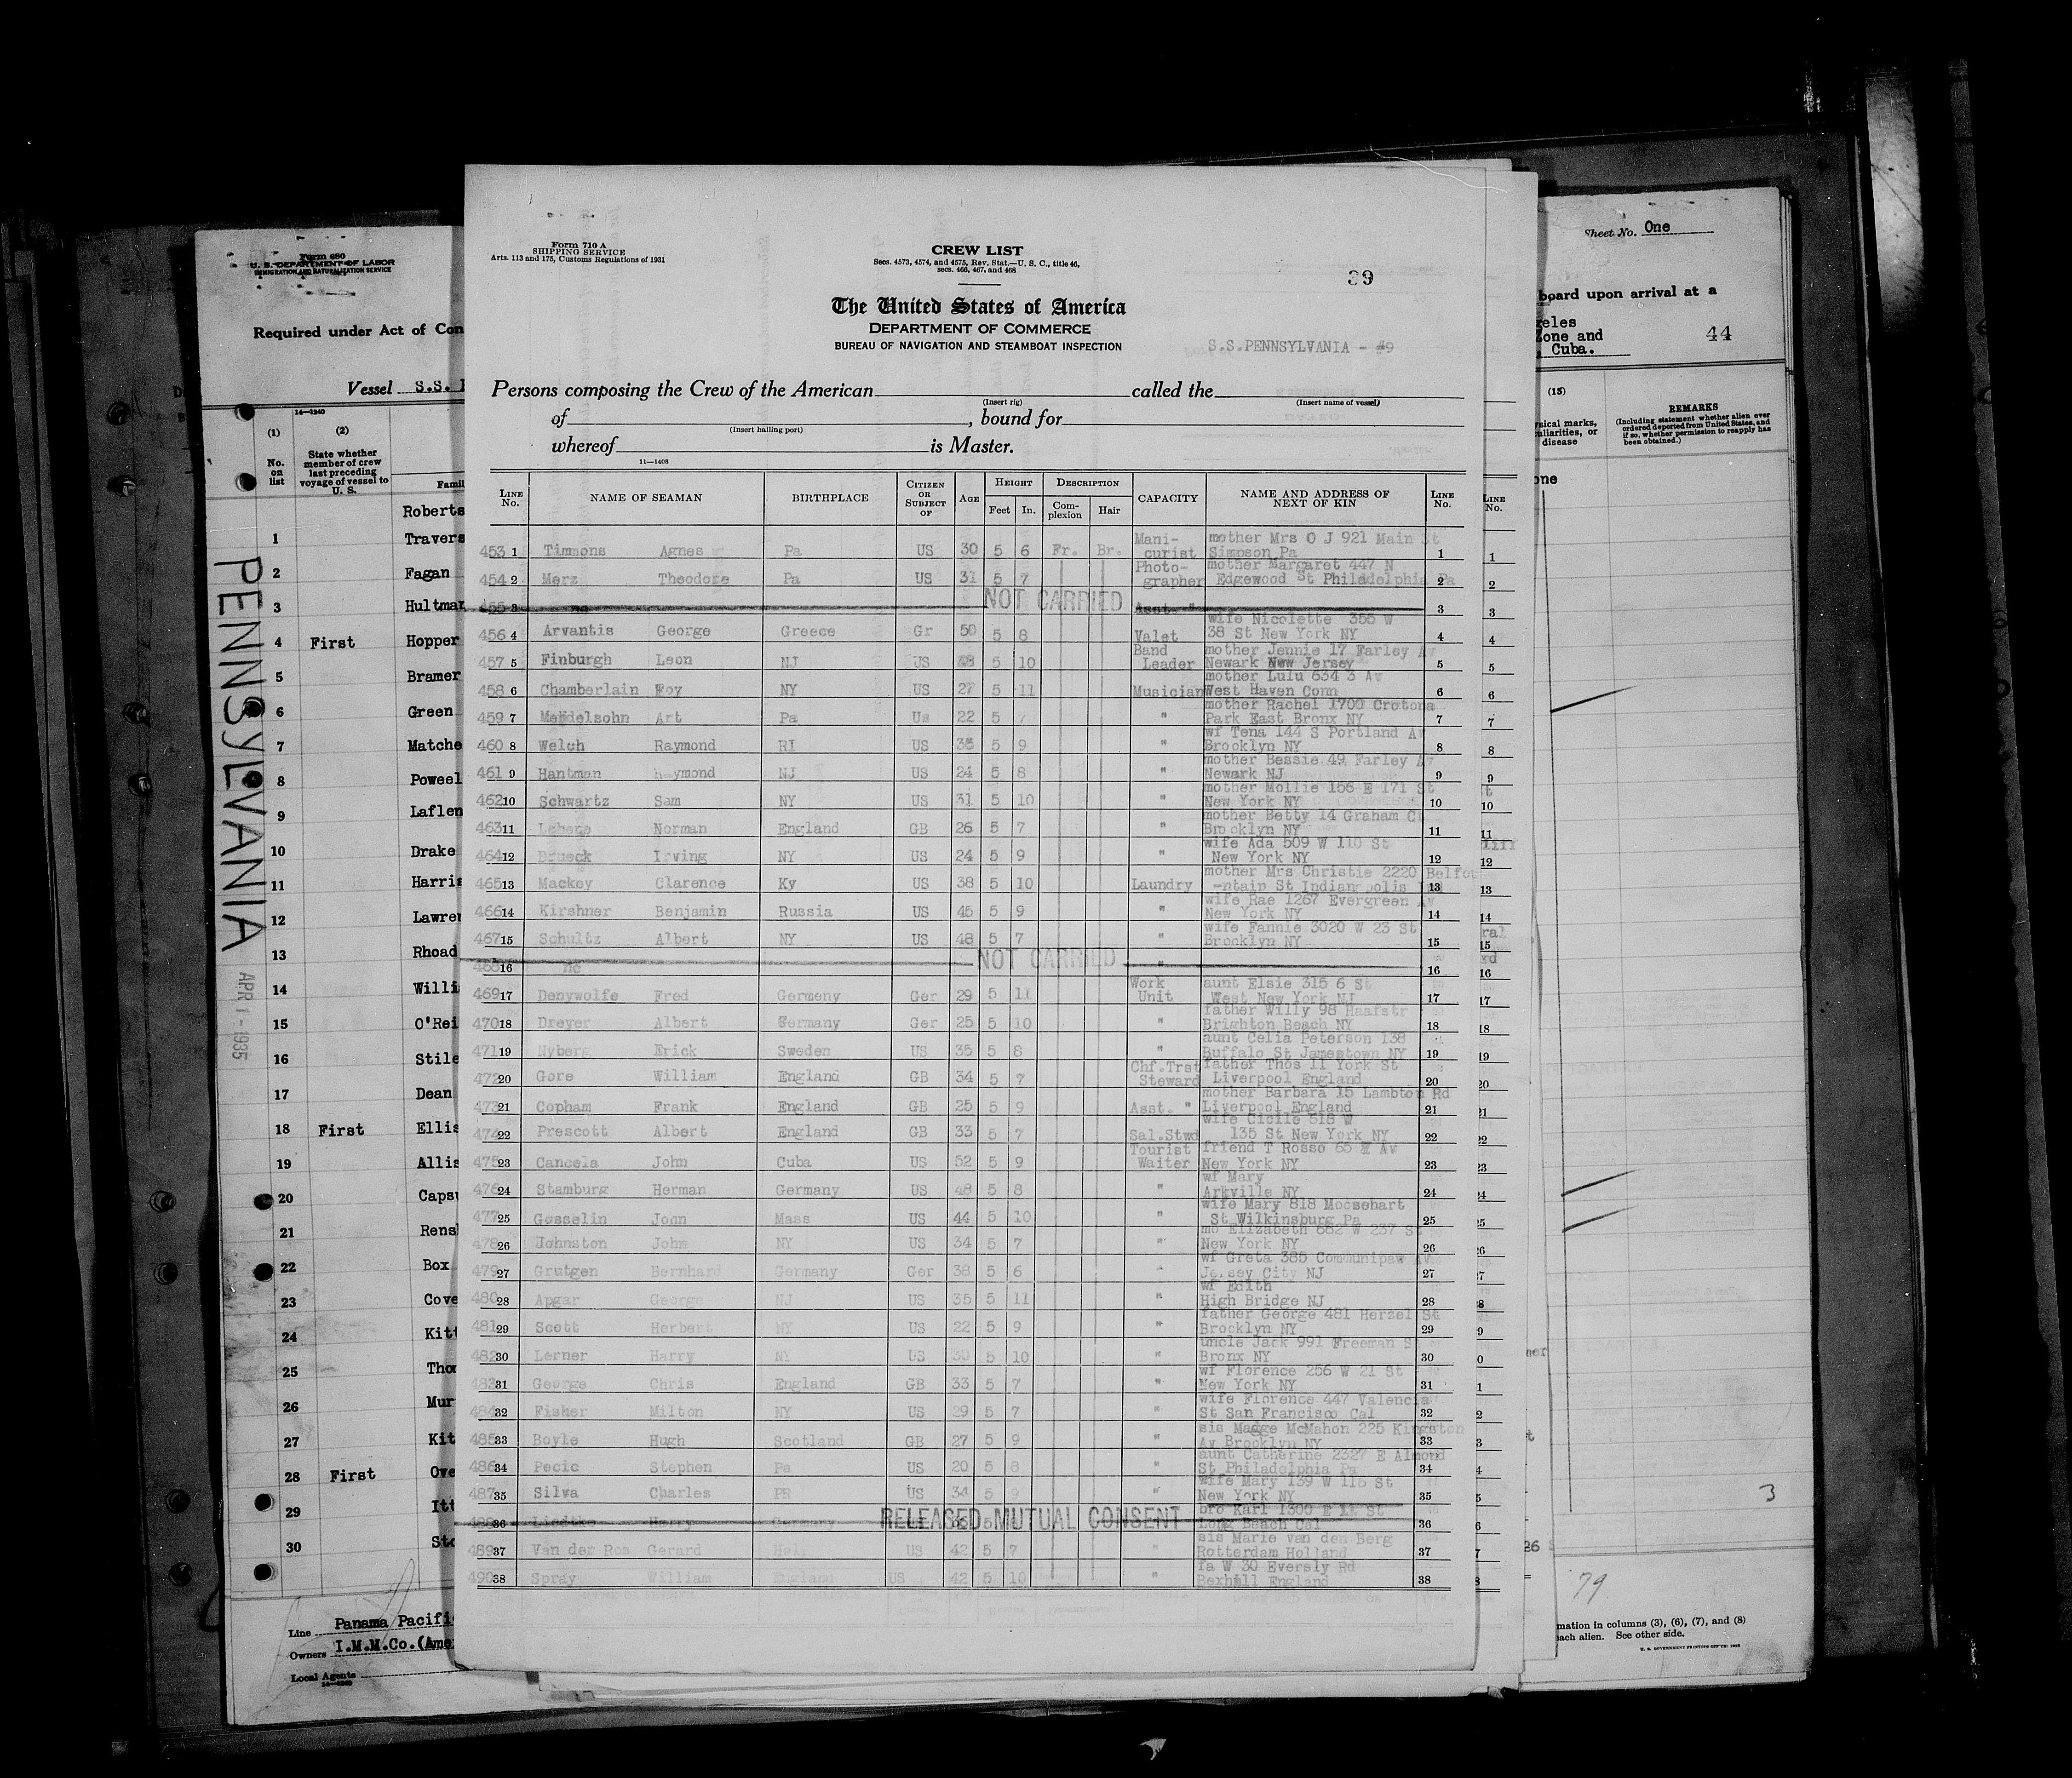 Form 680
U. S. DEPARTMENT OF LABOR
IMMIGRATION AND NATURALIZATION SERVICE
Required under Act of Con
Vessel S.S.
14—1240
(1)
No. on list
(2)
State whether member of crew last preceding voyage of vessel to U. S.
Famil
Roberts
1 Travers
2 Fagan
3 Hultman
4 First Hopper
5 Bramer
6 Green
7 Matche
8 Poweel
9 Laflen
10 Drake
11 Harris
12 Lawren
13 Rhoad
14 Willi
15 O'Rei
16 Stile
17 Dean
18 First Ellis
19 Allis
20 Capsu
21 Rens
22 Box
23 Cove
24 Kitt
25 Tho
26 Mur
27 Kit
28 First Ove
29 Itt
30 Sto
PENNSYLVANIA
APR 1 - 1935
Line Panama Pacifi
Owners I.M.M.Co.(Ame
Local Agents
14—1240
Form 710 A
SHIPPING SERVICE
Arts. 113 and 175, Customs Regulations of 1931
CREW LIST
Secs. 4573, 4574, and 4575, Rev. Stat.—U. S. C., title 46,
secs. 466, 467, and 468
39
The United States of America
DEPARTMENT OF COMMERCE
BUREAU OF NAVIGATION AND STEAMBOAT INSPECTION
S.S.PENNSYLVANIA - #9
Persons composing the Crew of the American called the
(Insert rig) (Insert name of vessel)
of , bound for
(Insert hailing port)
whereof is Master.
11—1408
LINE No. NAME OF SEAMAN BIRTHPLACE CITIZEN OR SUBJECT OF AGE HEIGHT Feet In. DESCRIPTION Complexion Hair CAPACITY NAME AND ADDRESS OF NEXT OF KIN LINE No.
453 1 Timmons Agnes Pa US 30 5 6 Fr. Br. Mani-curist mother Mrs O J 921 Main St Simpson Pa 1
454 2 Merz Theodore Pa US 31 5 7 Photo-grapher mother Margaret 447 N Edgewood St Philadelphia Pa 2
455 3 no NOT CARRIED Asst. " 3
456 4 Arvantis George Greece Gr 50 5 8 Valet wife Nicolette 355 W 38 St New York NY 4
457 5 Finburgh Leon NJ US 28 5 10 Band Leader mother Jennie 17 Farley Av Newark New Jersey 5
458 6 Chamberlain Foy NY US 27 5 11 Musician mother Lulu 634 3 Av West Haven Conn 6
459 7 Mendelsohn Art Pa Us 22 5 7 " mother Rachel 1700 Crotona Park East Bronx NY 7
460 8 Welch Raymond RI US 35 5 9 " wf Tena 144 S Portland Av Brooklyn NY 8
461 9 Hantman Raymond NJ US 24 5 8 " mother Bessie 49 Farley Av Newark NJ 9
462 10 Schwartz Sam NY US 31 5 10 " mother Mollie 156 E 171 St New York NY 10
463 11 Norman England GB 26 5 7 " mother Betty 14 Graham Ct Brooklyn NY 11
464 12 Brueck Irving NY US 24 5 9 " wife Ada 509 W 110 St New York NY 12
465 13 Mackey Clarence Ky US 38 5 10 Laundry mother Mrs Christie 2220 Belfou-ntain St Indianapolis 13
466 14 Kirshner Benjamin Russia US 45 5 9 " wife Rae 1267 Evergreen Av New York NY 14
467 15 Schultz Albert NY US 48 5 7 " wife Fannie 3020 W 23 St Brooklyn NY 15
468 16 no NOT CARRIED " 16
469 17 Denywolfe Fred Germeny Ger 29 5 11 Work Unit aunt Elsie 315 6 St West New York NJ 17
470 18 Dreyer Albert Germany Ger 25 5 10 " father Willy 98 Haafstr Brighton Beach NY 18
471 19 Nyberg Erick Sweden US 35 5 8 " aunt Celia Peterson 138 Buffalo St Jamestown NY 19
472 20 Gore William England GB 34 5 7 Chf.Trst Steward father Thos 11 York St Liverpool England 20
473 21 Copham Frank England GB 25 5 9 Asst. " mother Barbara 15 Lambton Rd Liverpool England 21
474 22 Prescott Albert England GB 33 5 7 Sal.Stwd wife Cicile 518 W 135 St New York NY 22
475 23 Cancela John Cuba US 52 5 9 Tourist Waiter friend T Rosso 65 Av New York NY 23
476 24 Stamburg Herman Germany US 48 5 8 " wf Mary Arkville NY 24
477 25 Gosselin John Mass US 44 5 10 " wife Mary 818 Moosehart St Wilkinsburg Pa 25
478 26 Johnston John NY US 34 5 7 " mo Elizabeth 662 W 237 St New York NY 26
479 27 Grutgen Bernhard Germany Ger 38 5 6 " wf Greta 385 Communipaw Av Jersey City NJ 27
480 28 Apgar George NJ US 35 5 11 " wf Edith High Bridge NJ 28
481 29 Scott Herbert NY US 22 5 9 " father George 481 Herzel St Brooklyn NY 29
482 30 Lerner Harry NY US 30 5 10 " uncle Jack 991 Freeman S Bronx NY 30
483 31 George Chris England GB 33 5 7 " wf Florence 256 W 21 St New York NY 31
484 32 Fisher Milton NY US 29 5 7 " wife Florence 447 Valencia St San Francisco Cal 32
485 33 Boyle Hugh Scotland GB 27 5 9 " sis Madge McMahon 225 Kingston Av Brooklyn NY 33
486 34 Pecic Stephen Pa US 20 5 8 " aunt Catherine 2327 E Almond St Philadelphia Pa 34
487 35 Silva Charles PR US 34 5 9 " wife Mary 139 W 116 St New York NY 35
488 36 Liedtke Harry Germany RELEASED MUTUAL CONSENT bro Karl 1300 E St Long Beach Cal 36
489 37 Van der Ros Gerard Hol. US 42 5 7 " sis Marie van den Berg Rotterdam Holland 37
490 38 Spray William England US 42 5 10 " fa W 30 Eversly Rd Bexhill England 38
Sheet No. One
board upon arrival at a
eles
Zone and
, Cuba.
44
(15)
sical marks,
uliarities, or
disease
REMARKS
(Including statement whether alien ever ordered deported from United States, and if so, whether permission to reapply has been obtained.)
one
3
79
mation in columns (3), (6), (7), and (8)
each alien. See other side.
U. S. GOVERNMENT PRINTING OFFICE